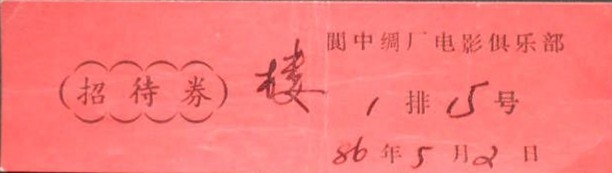 阆中绸厂电影俱乐部
招待券
楼
1排15号
86年5月2日